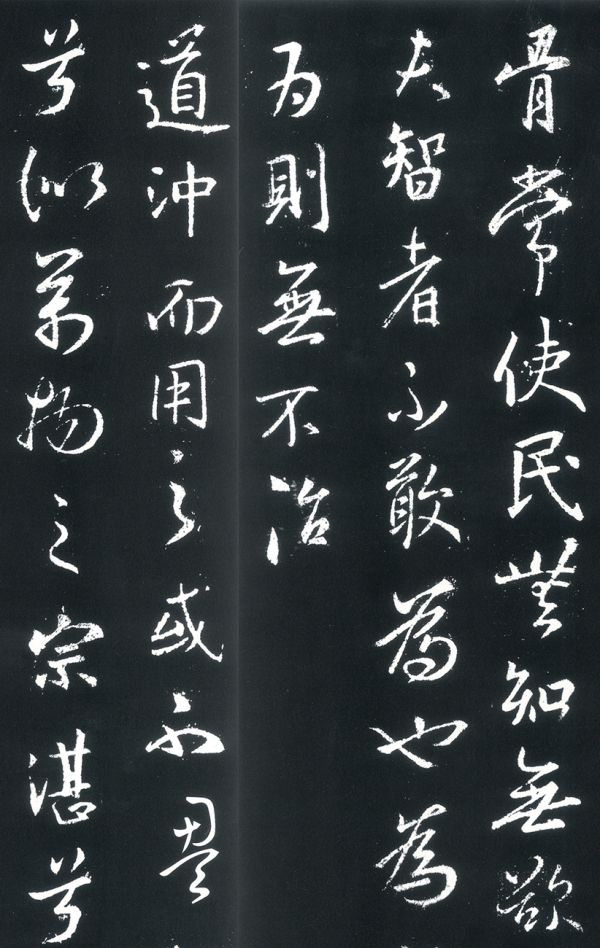 骨常使民無知無欲
夫智者不敢為也為
為則無不治
道沖而用之或不盈
兮似萬物之宗湛兮